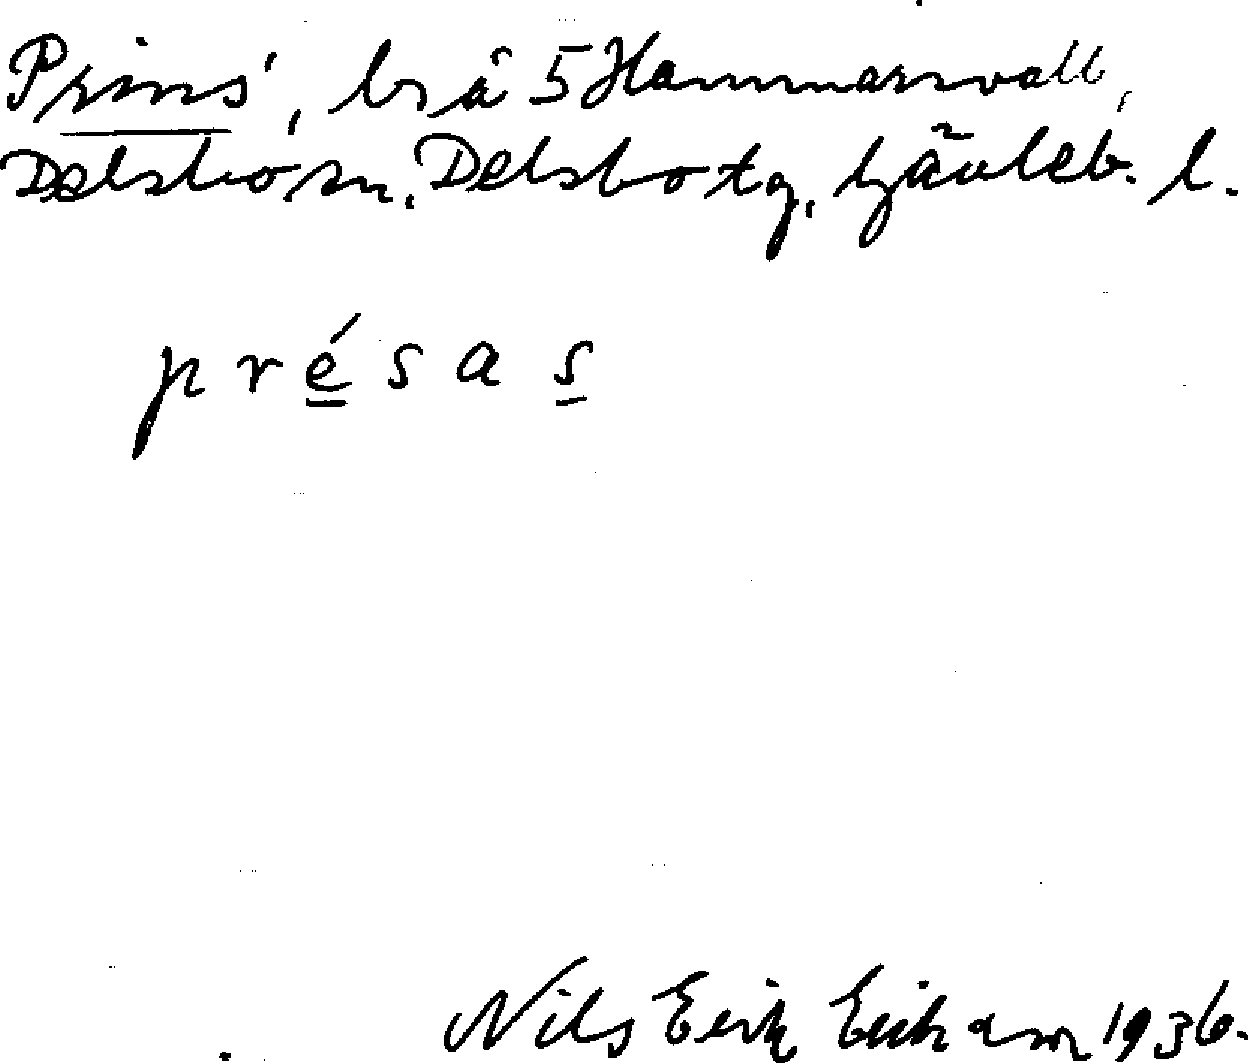 Prins', br å 5 Hammarvall,
Delsbo sn, Delsbo tg, Gävleb. l.
présas
Nils Erik Erikson 1936.